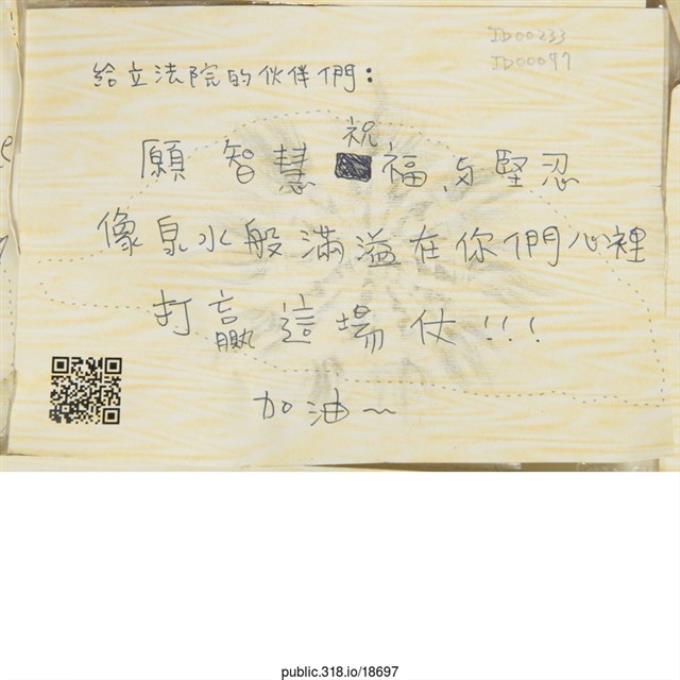 JD00233
JD00097
給立法院的伙伴們：
願智慧祝福与堅忍
像泉水般滿溢在你們心裡
打贏這場仗!!!
加油~
public.318.io/18697